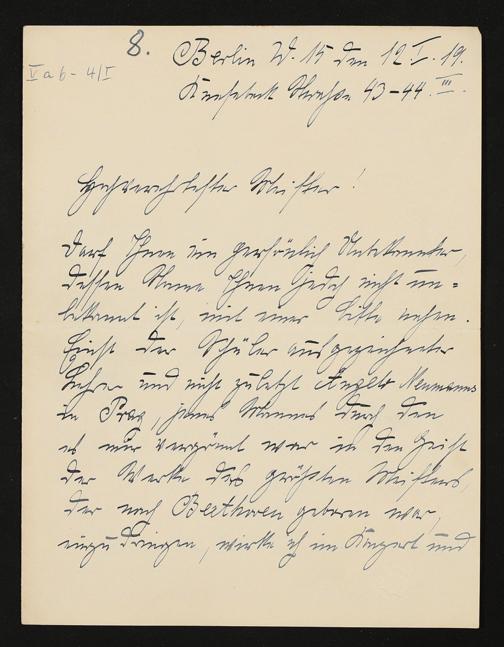 8.
V a 6 - 4/I
Berlin W. 15 den 12.I.19.
Knesebeck Straße 43–44 III.
Hochverehrtester Meister!
Darf Ihnen ein persönlich Unbekannter,
dessen Name Ihnen jedoch nicht un=
bekannt ist, mit einer Bitte nahen.
Einst der Schüler ausgezeichneter
Lehrer und nicht zuletzt Angelo Neumanns
in Prag, jenes Mannes durch den
es mir vergönnt war in den Geist
der Werke des größten Meisters,
der nach Beethoven geboren war,
einzudringen, wirke ich im Konzert und